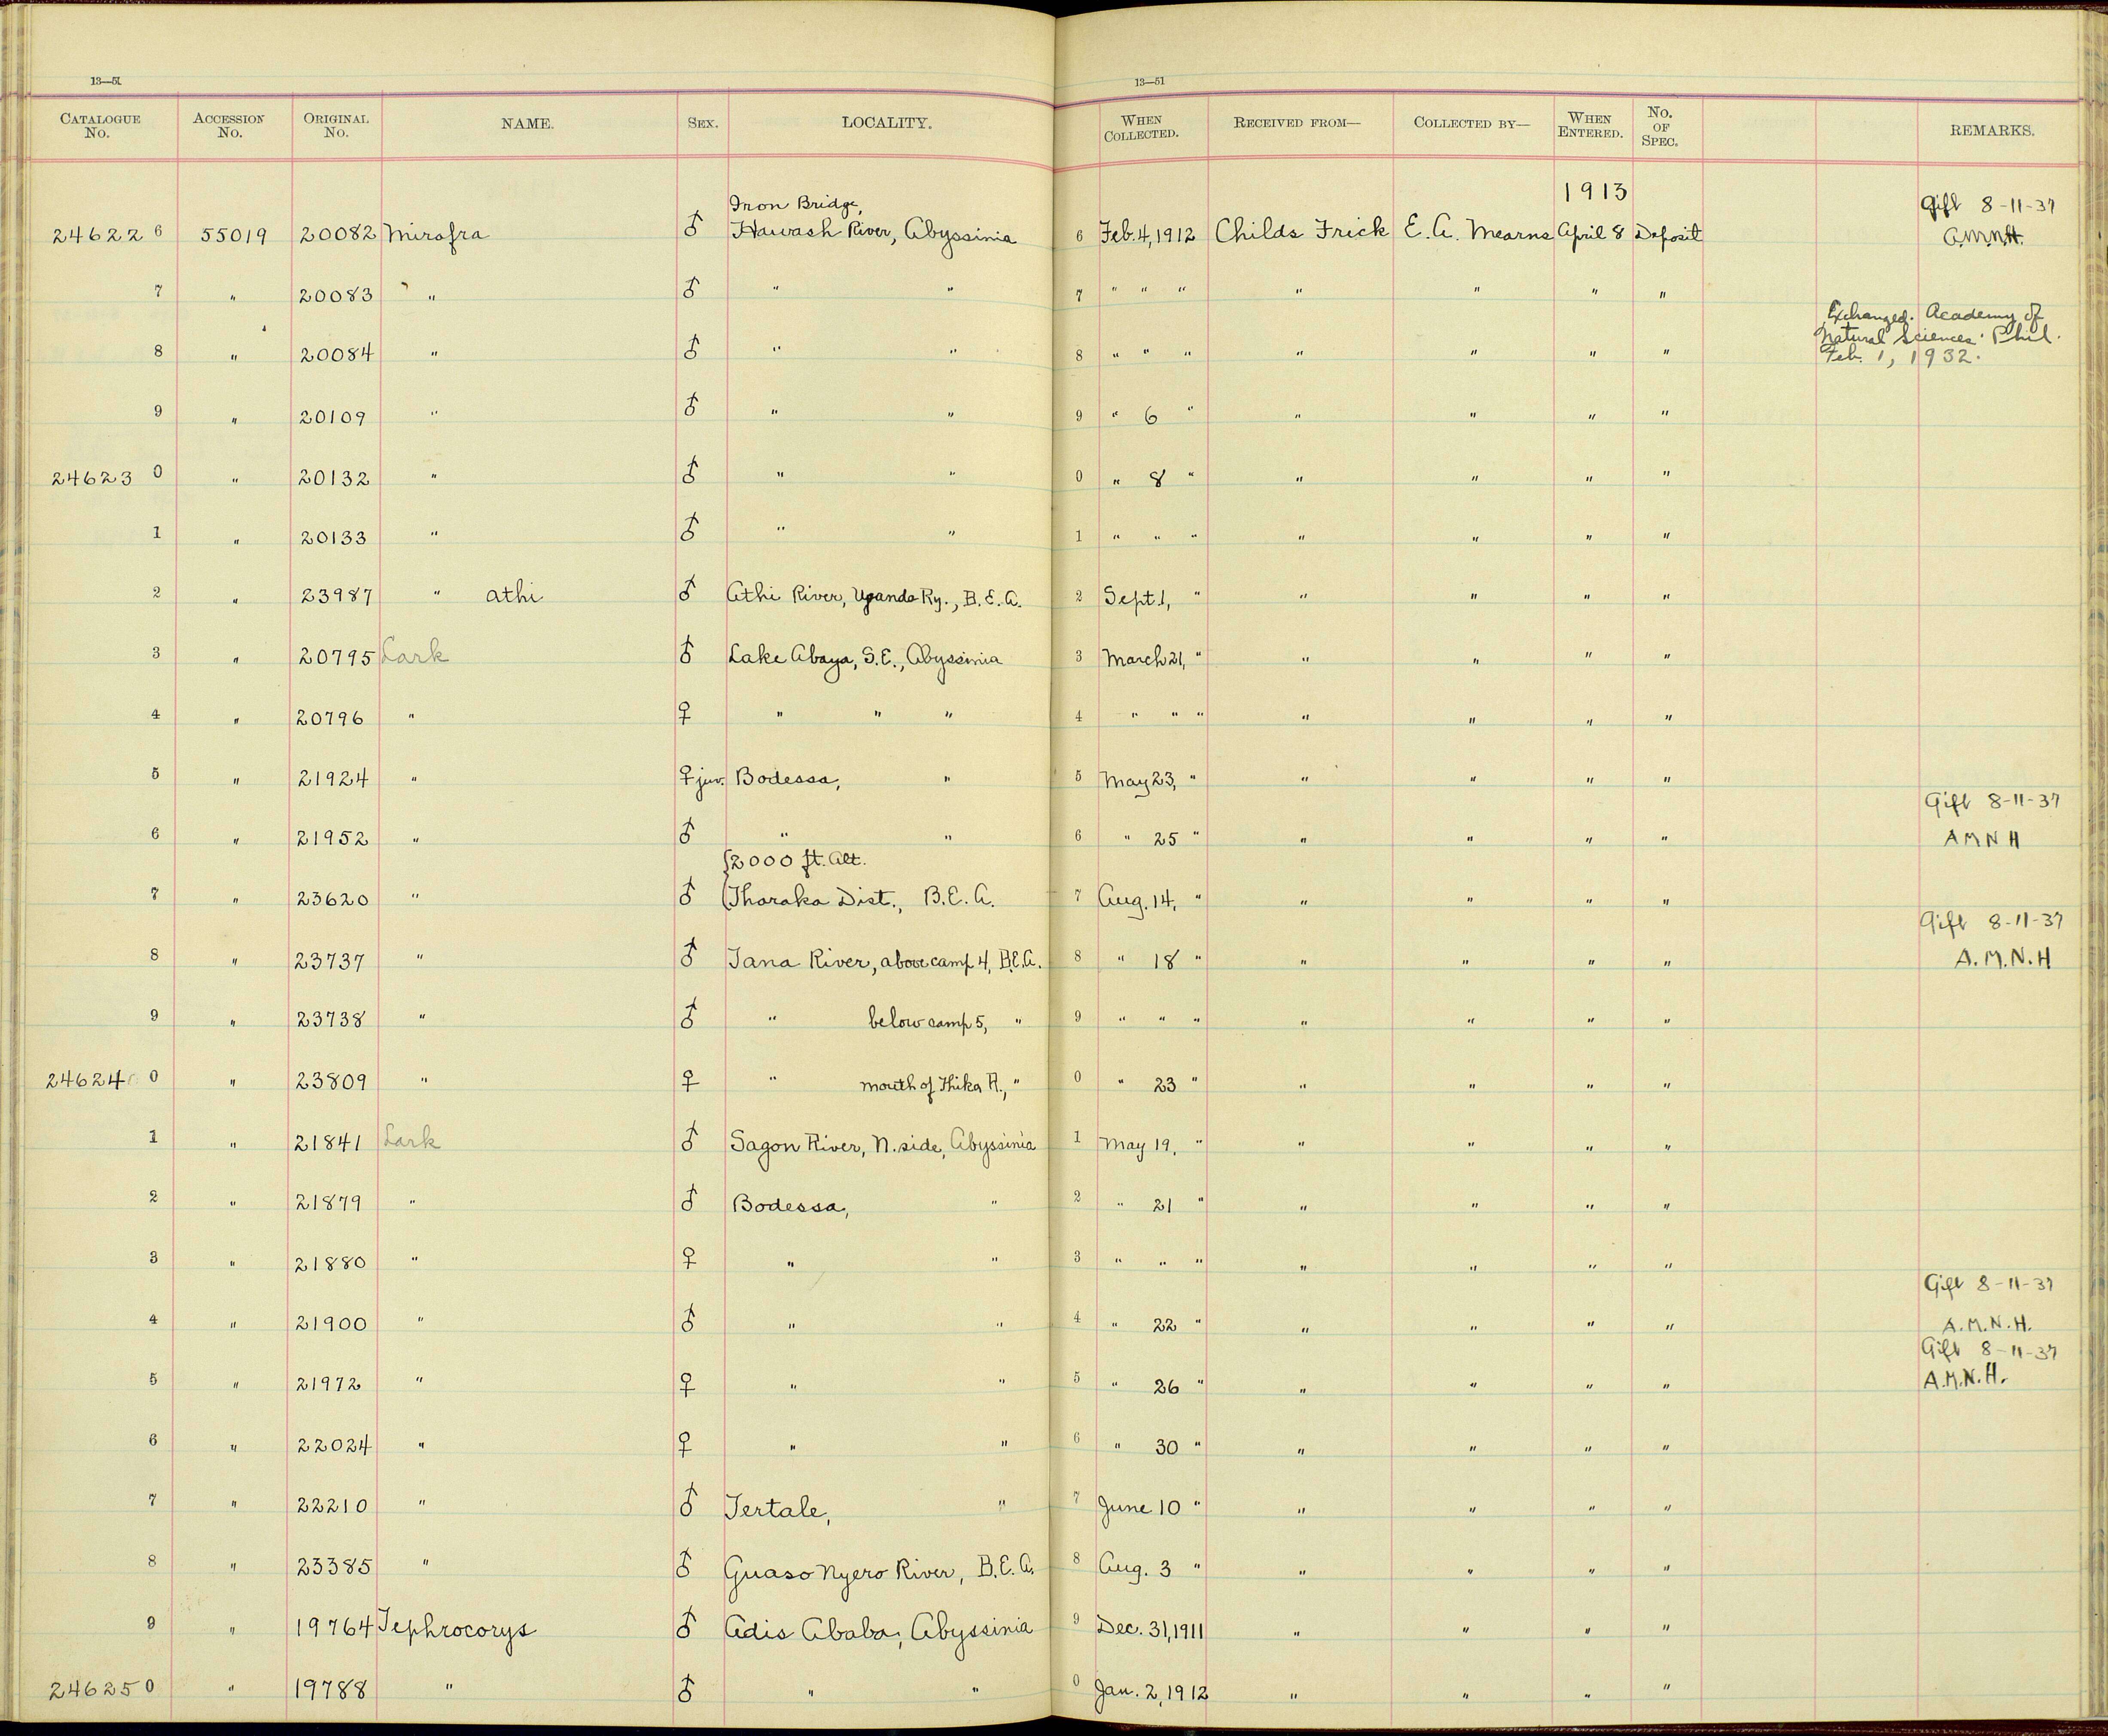 13—51 13—51
CATALOGUE No. ACCESSION No. ORIGINAL No. NAME. SEX. LOCALITY. WHEN COLLECTED. RECEIVED FROM— COLLECTED BY— WHEN ENTERED. No. OF SPEC. REMARKS.
1913
Iron Bridge, Gift 8-11-37
24622 6 55019 20082 Mirafra ♂ Hawash River, Abyssinia 6 Feb. 4, 1912 Childs Frick E. A. Mearns April 8 Deposit A.M.N.H.
7 " 20083 " ♂ " " 7 " " " " " " "
Exchanged. Academy of
Natural Sciences. Phil.
8 " 20084 " ♂ " " 8 " " " " " " " Feb. 1, 1932.
9 " 20109 " ♂ " " 9 " 6 " " " " "
24623 0 " 20132 " ♂ " " 0 " 8 " " " " "
1 " 20133 " ♂ " " 1 " " " " " " "
2 " 23987 " athi ♂ Athi River, Uganda Ry., B.E.A. 2 Sept. 1, " " " " "
3 " 20795 Lark ♂ Lake Abaya, S.E., Abyssinia 3 March 21, " " " " "
4 " 20796 " ♀ " " " 4 " " " " " " "
5 " 21924 " ♀ juv. Bodessa, " 5 May 23, " " " " "
Gift 8-11-37
6 " 21952 " ♂ " " 6 " 25 " " " " " AMNH
{2000 ft. Alt.
7 " 23620 " ♂ Tharaka Dist., B.E.A. 7 Aug. 14, " " " " "
Gift 8-11-37
8 " 23737 " ♂ Tana River, above camp 4, B.E.A. 8 " 18 " " " " " A.M.N.H
9 " 23738 " ♂ " below camp 5, " 9 " " " " " " "
24624 0 " 23809 " ♀ " mouth of Thika R., " 0 " 23 " " " " "
1 " 21841 Lark ♂ Sagon River, N. side, Abyssinia 1 May 19, " " " " "
2 " 21879 " ♂ Bodessa, " 2 " 21 " " " " "
3 " 21880 " ♀ " " 3 " " " " " " "
Gift 8-11-37
4 " 21900 " ♂ " " 4 " 22 " " " " " A.M.N.H.
Gift 8-11-37
5 " 21972 " ♀ " " 5 " 26 " " " " " A.M.N.H.
6 " 22024 " ♀ " " 6 " 30 " " " " "
7 " 22210 " ♂ Tertale, " 7 June 10 " " " " "
8 " 23385 " ♂ Guaso Nyero River, B.E.A. 8 Aug. 3 " " " " "
9 " 19764 Tephrocorys ♂ Adis Ababa, Abyssinia 9 Dec. 31, 1911 " " " "
24625 0 " 19788 " ♂ " " 0 Jan. 2, 1912 " " " "